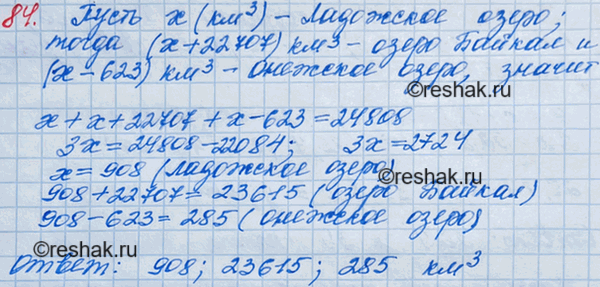 84. Пусть x (км³) - Ладожское озеро;
тогда (x+22707) км³ - озеро Байкал и
(x-623) км³ - Онежское озеро, значит
x+x+22707+x-623=24808
3x=24808-22084; 3x=2724
x=908 (Ладожское озеро)
908+22707=23615 (озеро Байкал)
908-623=285 (Онежское озеро)
©reshak.ru ©reshak.ru
Ответ: 908; 23615; 285 км³
©reshak.ru ©reshak.ru